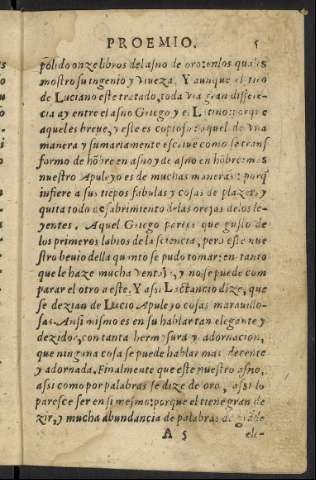 PROEMIO. 5
polido onze libros del asno de oro: en los quales
mostro su ingenio y viueza. Y aunque el tito
de Luciano este tratado, toda via gran differē-
cia ay entre el asno Griego y el Latino: porque
aquel es breue, y este es copioso: aquel de vna
manera y sumariamente escriue como se trans
formo de hōbre en asno y de asno en hōbre: mas
nuestro Apuleyo es de muchas maneras: porq̄
infiere a sus tiēpos fabulas y cosas de plazer, y
quita todo desabrimiento de las orejas de los le-
yentes. Aquel Griego parece que gusto de
los primeros labios de la sciencia, pero este nue
stro beuio della quanto se pudo tomar: en tanto
que le haze mucha ventaja, y no se puede com
parar el otro a este. Y assi Lactancio dize, que
se dezian de Lucio Apuleyo cosas marauillo-
sas. Ansi mismo es en su hablar tan elegante y
dezidor, con tanta hermosura y adornacion,
que ninguna cosa se puede hablar mas decente
y adornada. Finalmente que este nuestro asno,
assi como por palabras se dize de oro, assi lo
paresce ser en si mesmo: porque el tiene gran de
zir, y mucha abundancia de palabras de grāde
A 5 ele-